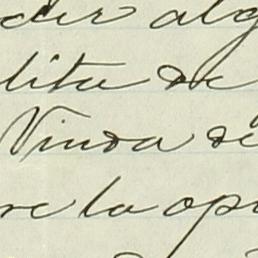 der alg
lita de
Viuda de
re la opi